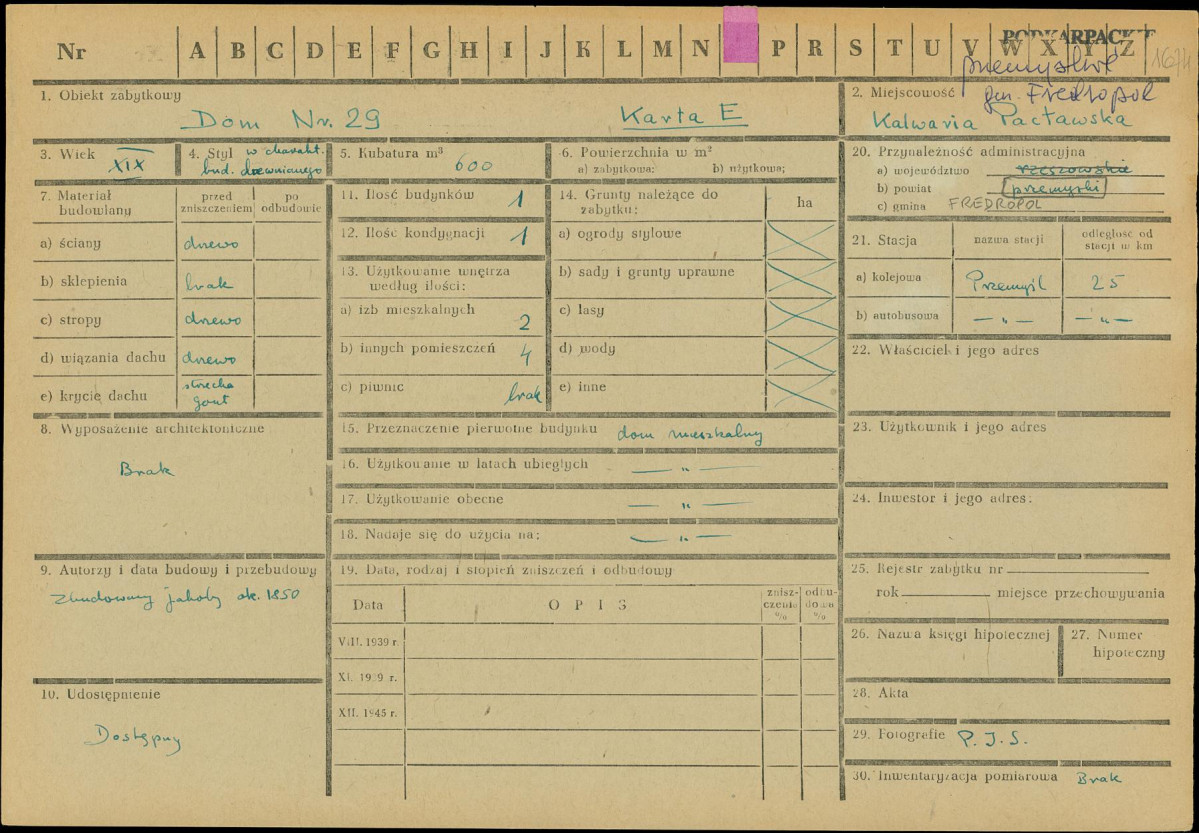 PODKARPACKIE
Nr A B C D E F G H I J K L M N P R S T U V W X Y Z
przemyski
gm. Fredropol
1. Obiekt zabytkowy
Dom Nr. 29 Karta E
2. Miejscowość
Kalwaria Pacławska
3. Wiek
XIX
4. Styl w charakt.
bud. drewnianego
5. Kubatura m³
600
6. Powierzchnia w m²
a) zabytkowa: b) użytkowa:
7. Materiał budowlany
przed zniszczeniem
po odbudowie
a) ściany drewo
b) sklepienia brak
c) stropy drewo
d) wiązania dachu drewo
e) krycie dachu strzecha
gont
8. Wyposażenie architektoniczne
Brak
9. Autorzy i data budowy i przebudowy
Zbudowany jakoby ok. 1850
10. Udostępnienie
Dostępny
11. Ilość budynków 1
12. Ilość kondygnacji 1
13. Użytkowanie wnętrza
według ilości:
a) izb mieszkalnych 2
b) innych pomieszczeń 4
c) piwnic brak
14. Grunty należące do
zabytku: ha
a) ogrody stylowe
b) sady i grunty uprawne
c) lasy
d) wody
e) inne
15. Przeznaczenie pierwotne budynku dom mieszkalny
16. Użytkowanie w latach ubiegłych — „ —
17. Użytkowanie obecne — „ —
18. Nadaje się do użycia na: — „ —
19. Data, rodzaj i stopień zniszczeń i odbudowy
Data OPIS
znisz-
czenia
%
odbu-
dowa
%
VIII. 1939 r.
XI. 1939 r.
XII. 1945 r.
20. Przynależność administracyjna
a) województwo rzeszowskie
b) powiat przemyski
c) gmina FREDROPOL
21. Stacja nazwa stacji
odległość od
stacji w km
a) kolejowa Przemyśl 25
b) autobusowa — „ — — „ —
22. Właściciel i jego adres
23. Użytkownik i jego adres
24. Inwestor i jego adres:
25. Rejestr zabytku nr
rok miejsce przechowywania
26. Nazwa księgi hipotecznej
27. Numer
hipoteczny
28. Akta
29. Fotografie P. I. S.
30. Inwentaryzacja pomiarowa Brak